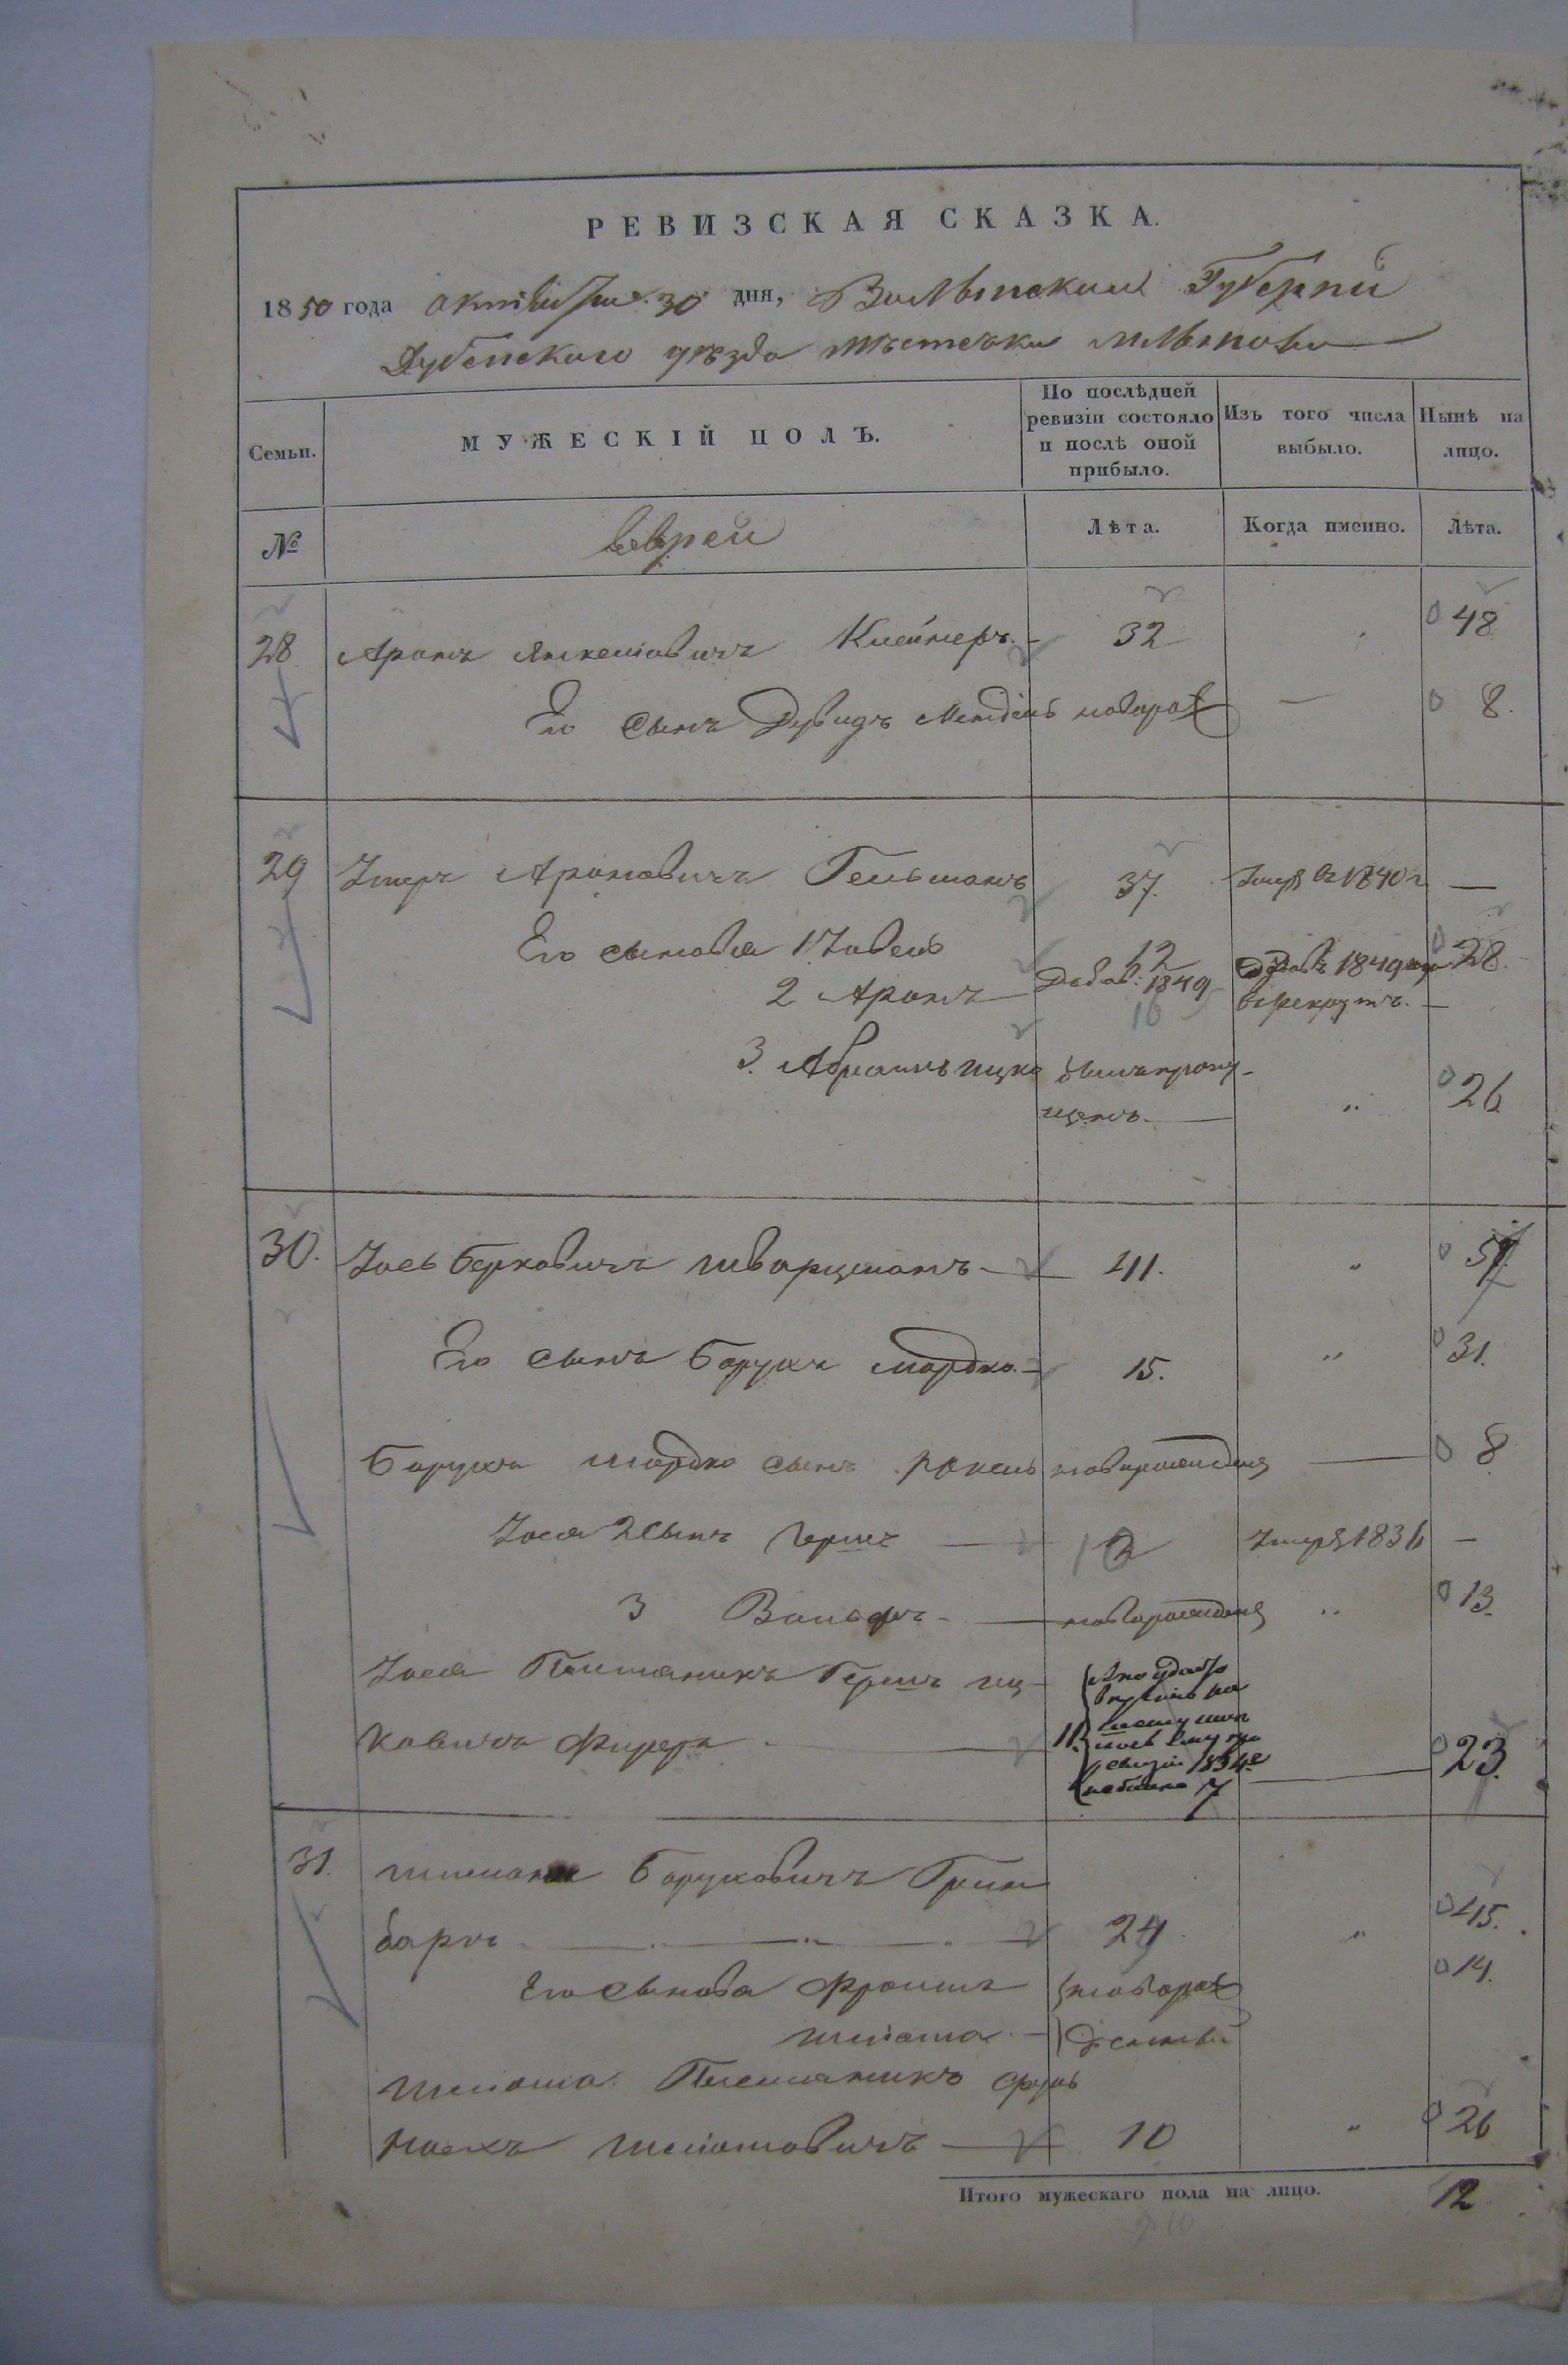 РЕВИЗСКАЯ СКАЗКА.
1850 года октября 30 дня, Волынской Губерніи
Дубенского уѣзда мѣстечка Млынова
Семьи. МУЖЕСКІЙ ПОЛЪ. По послѣдней ревизіи состояло и послѣ оной прибыло. Изъ того числа выбыло. Нынѣ на лицо.
№ Евреи Лѣта. Когда именно. Лѣта.
28 Аронъ Янкелiовичъ Клейнеръ. 32 48
Его сынъ Дувидъ Мендель новорож 8.
29 Iтеръ Ароновичъ Гельманъ 37. Умеръ въ 1840 г —
Его сыновья 1 Iовель 12 28
2 Аронъ Добав: 1849 16 1849 в рекруты. —
3. Абрамъ Ицко былъ пропу-
щенъ. 26
30. Iось Берковичъ Шварцманъ 41. 57
Его сынъ Барухъ Мордко. 15. 31.
Барухъ Мордко сынъ новорожденъ — 8
Iося 2 сынъ Гершъ 2 Умеръ 1836 —
3 Вольфъ новорожденъ 13.
Iося Племяникъ Гершъ Иц-
ковичъ Фиреръ 11. ревизіи 1834 7 23.
31. Шлиома Баруховичъ Грин
баргъ 29 45.
Его сыновья Фроимъ новорож 14.
Шлiома денный
Шлiома Племяникъ
Шлiомовичъ 10 26
Итого мужескаго пола на лицо. 12